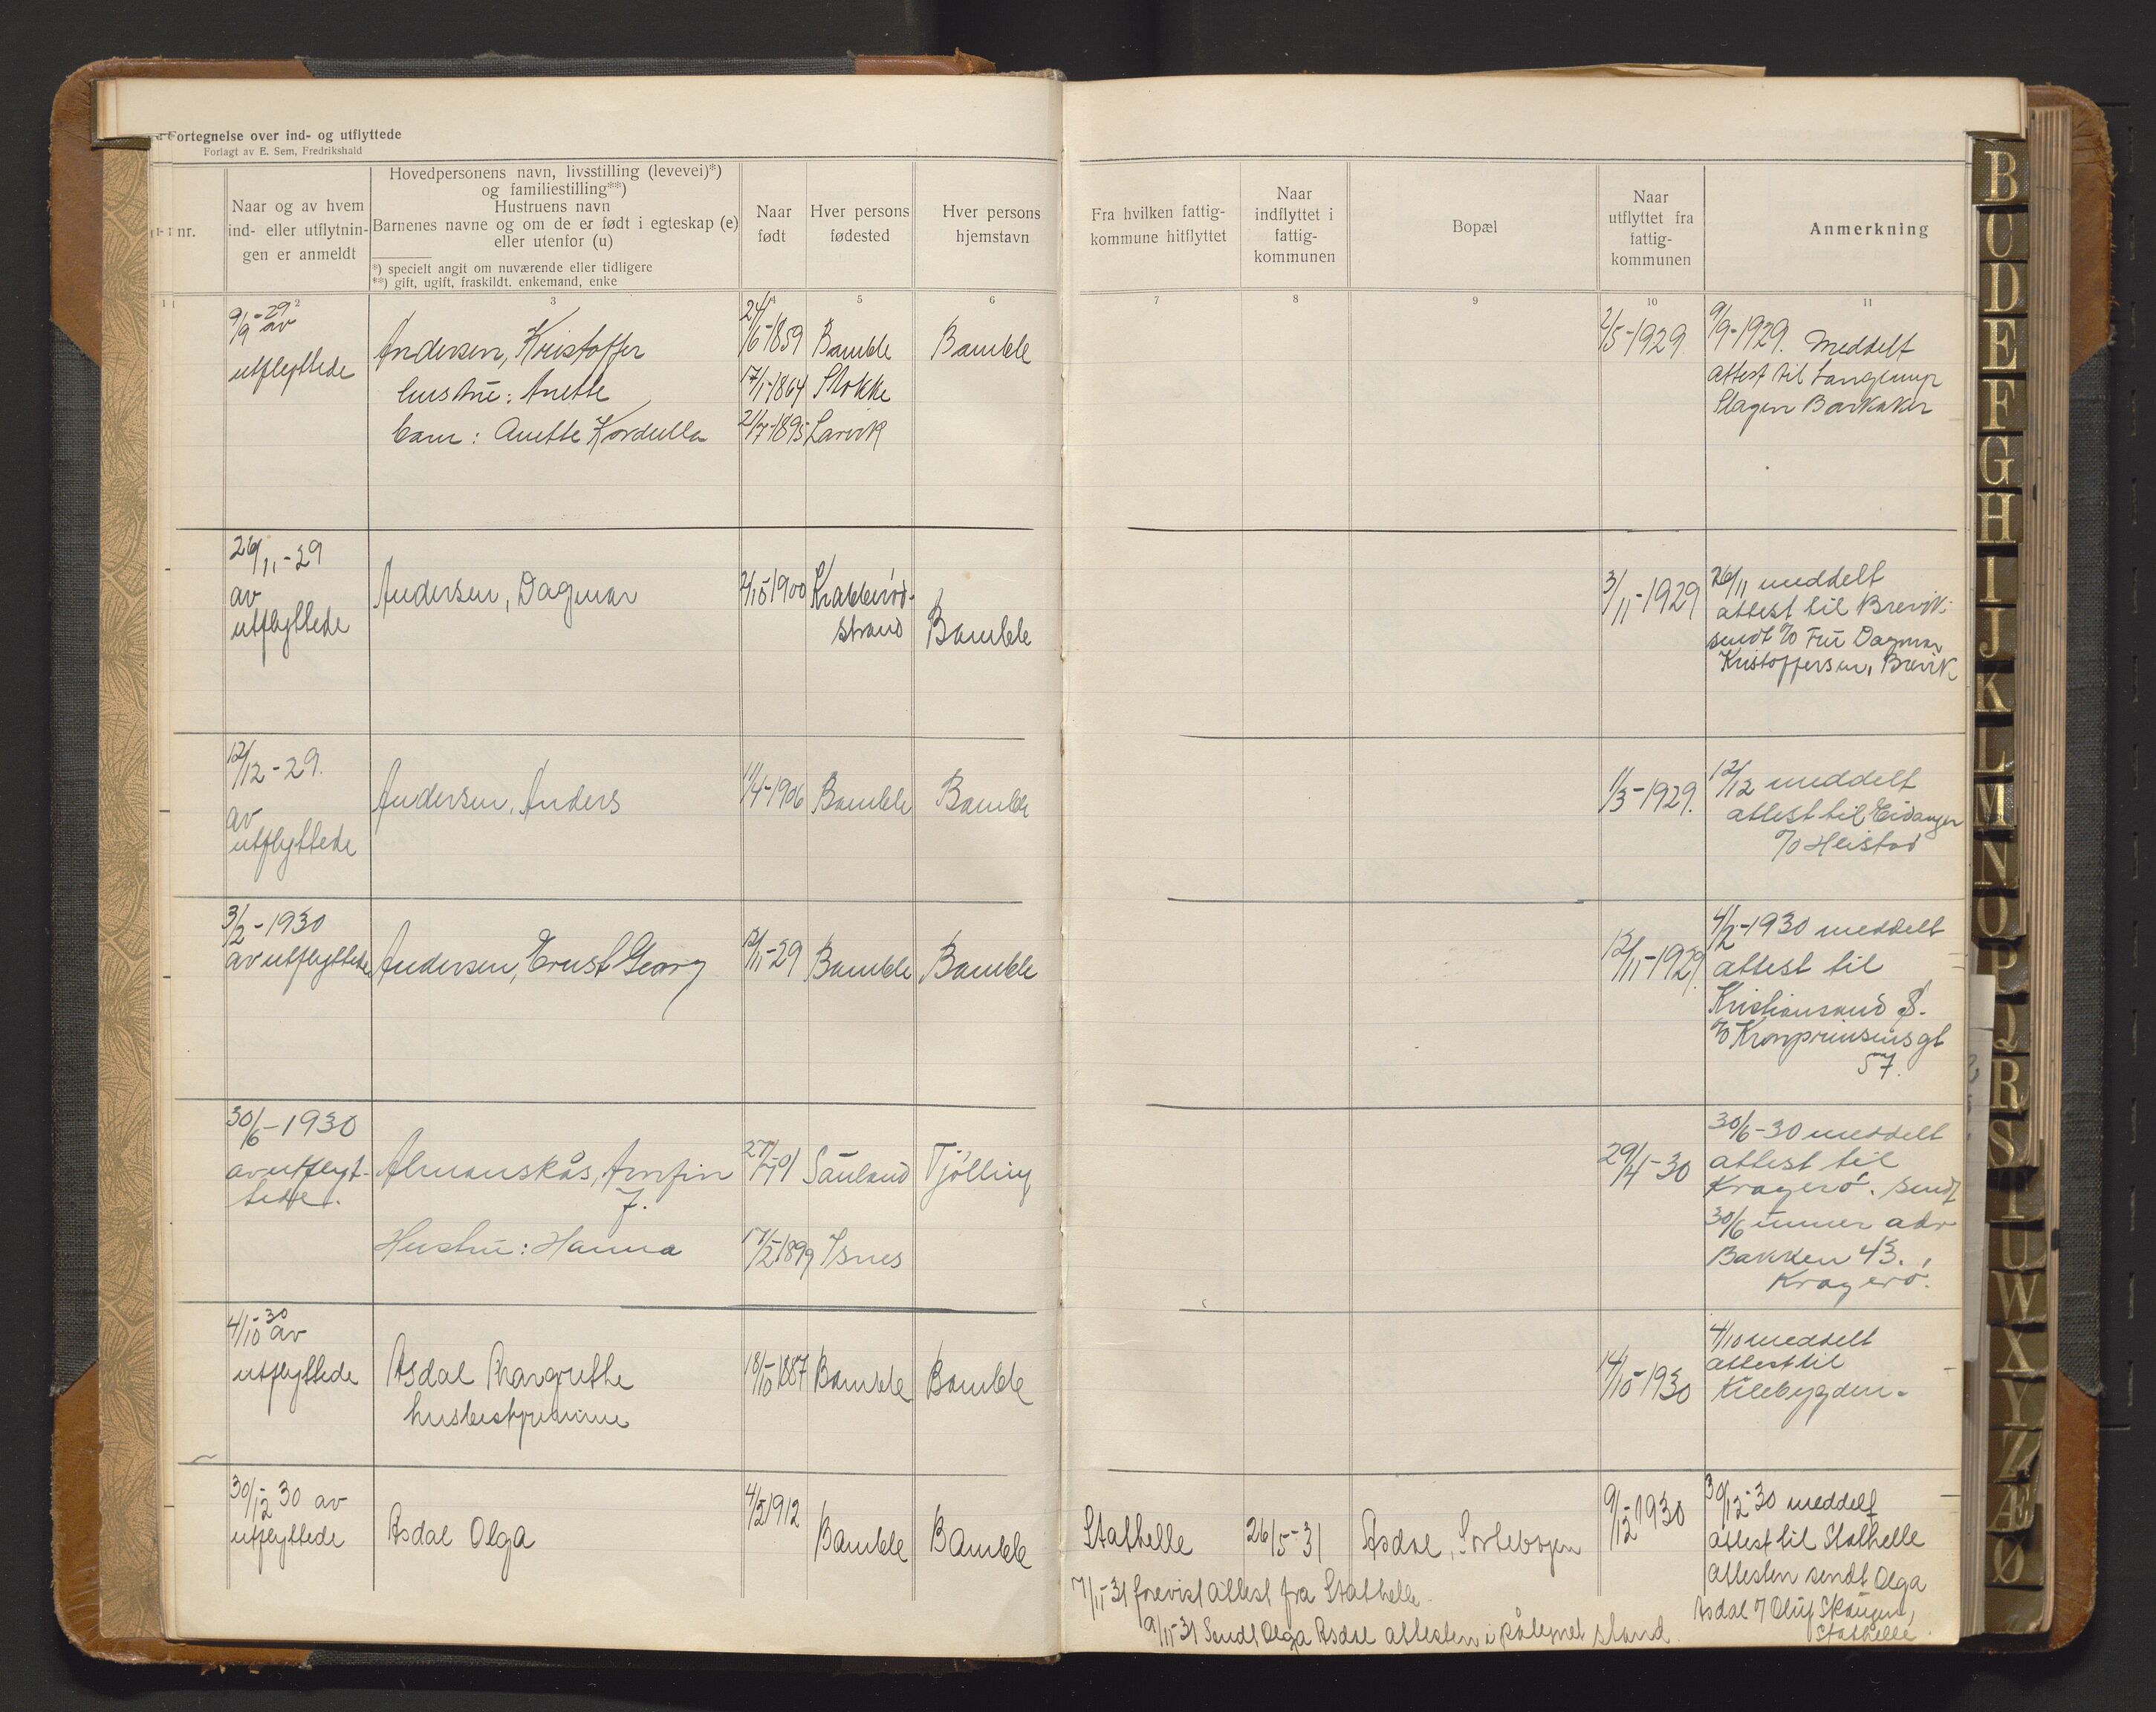 Fortegnelse over ind- og utflyttede
Forlagt av E. Sem, Fredrikshald
nr.
Naar og av hvem
ind- eller utflytnin-
gen er anmeldt
Hovedpersonens navn, livsstilling (levevei)*)
og familiestilling**)
Hustruens navn
Barnenes navne og om de er født i egteskap (e)
eller utenfor (u)
*) specielt angit om nuværende eller tidligere
**) gift, ugift, fraskildt. enkemand, enke
Naar
født
Hver persons
fødested
Hver persons
hjemstavn
Fra hvilken fattig-
kommune hitflyttet
Naar
indflyttet i
fattig-
kommunen
Bopæl
Naar
utflyttet fra
fattig-
kommunen
Anmerkning
1 2 3 4 5 6 7 8 9 10 11
9/9-29 av
utflyttede
Andersen, Kristoffer
hustru: Anette
barn: Anette Kordulla
24/6-1859 Bamble Bamble
17/1-1864 Stokke
21/7-1895 Larvik
2/5-1929
9/9-1929. Meddelt
attest til
Slagen Barkaker
26/11-29
av
utflyttede
Andersen, Dagmar
2/10-1900 Krabberød-
strand
Bamble
3/11-1929
26/11 meddelt
attest til Brevik
sendt % Fru Dagmar
Kristoffersen, Brevik
12/12-29.
av
utflyttede
Andersen, Anders
11/4-1906 Bamble Bamble
1/3-1929.
12/12 meddelt
attest til Eidanger
% Heistad
3/2-1930
av utflyttede
Andersen, Ernst Georg
12/11-29 Bamble Bamble
12/11-1929.
4/2-1930 meddelt
attest til
Kristiansand S.
% Kronprinsensgt
57.
30/6-1930
av utflyt-
tede.
Almanskås, Arnfin
J.
Sauland Tjölling
Hustru: Hanna
17/2-1899
29/4-30
30/6-30 meddelt
attest til
Kragerö. sendt
30/6 under adr
Bakken 43.
Kragerö.
4/10-30 av
utflyttede
Asdal Margrethe
husbestyrerinne
18/10-1887 Bamble Bamble
14/10-1930
4/10 meddelt
attest til
Kilebygden.
30/12-30 av
utflyttede
Asdal Olga
4/5 1912
Bamble Bamble
Stathelle 26/5-31 Asdal,
9/12-1930
30/12-30 meddelt
attest til Stathelle
attesten sendt Olga
Asdal % Oluf Skaugen,
Stathelle.
7/11-31 forevist attest fra Stathelle.
9/11-31 Sendt Olga Asdal attesten i påtegnet stand.
B
C
D
E
F
G
H
I
J
K
L
M
N
O
P
Q
R
S
T
U
W
X
Y
Z
Æ
Ø